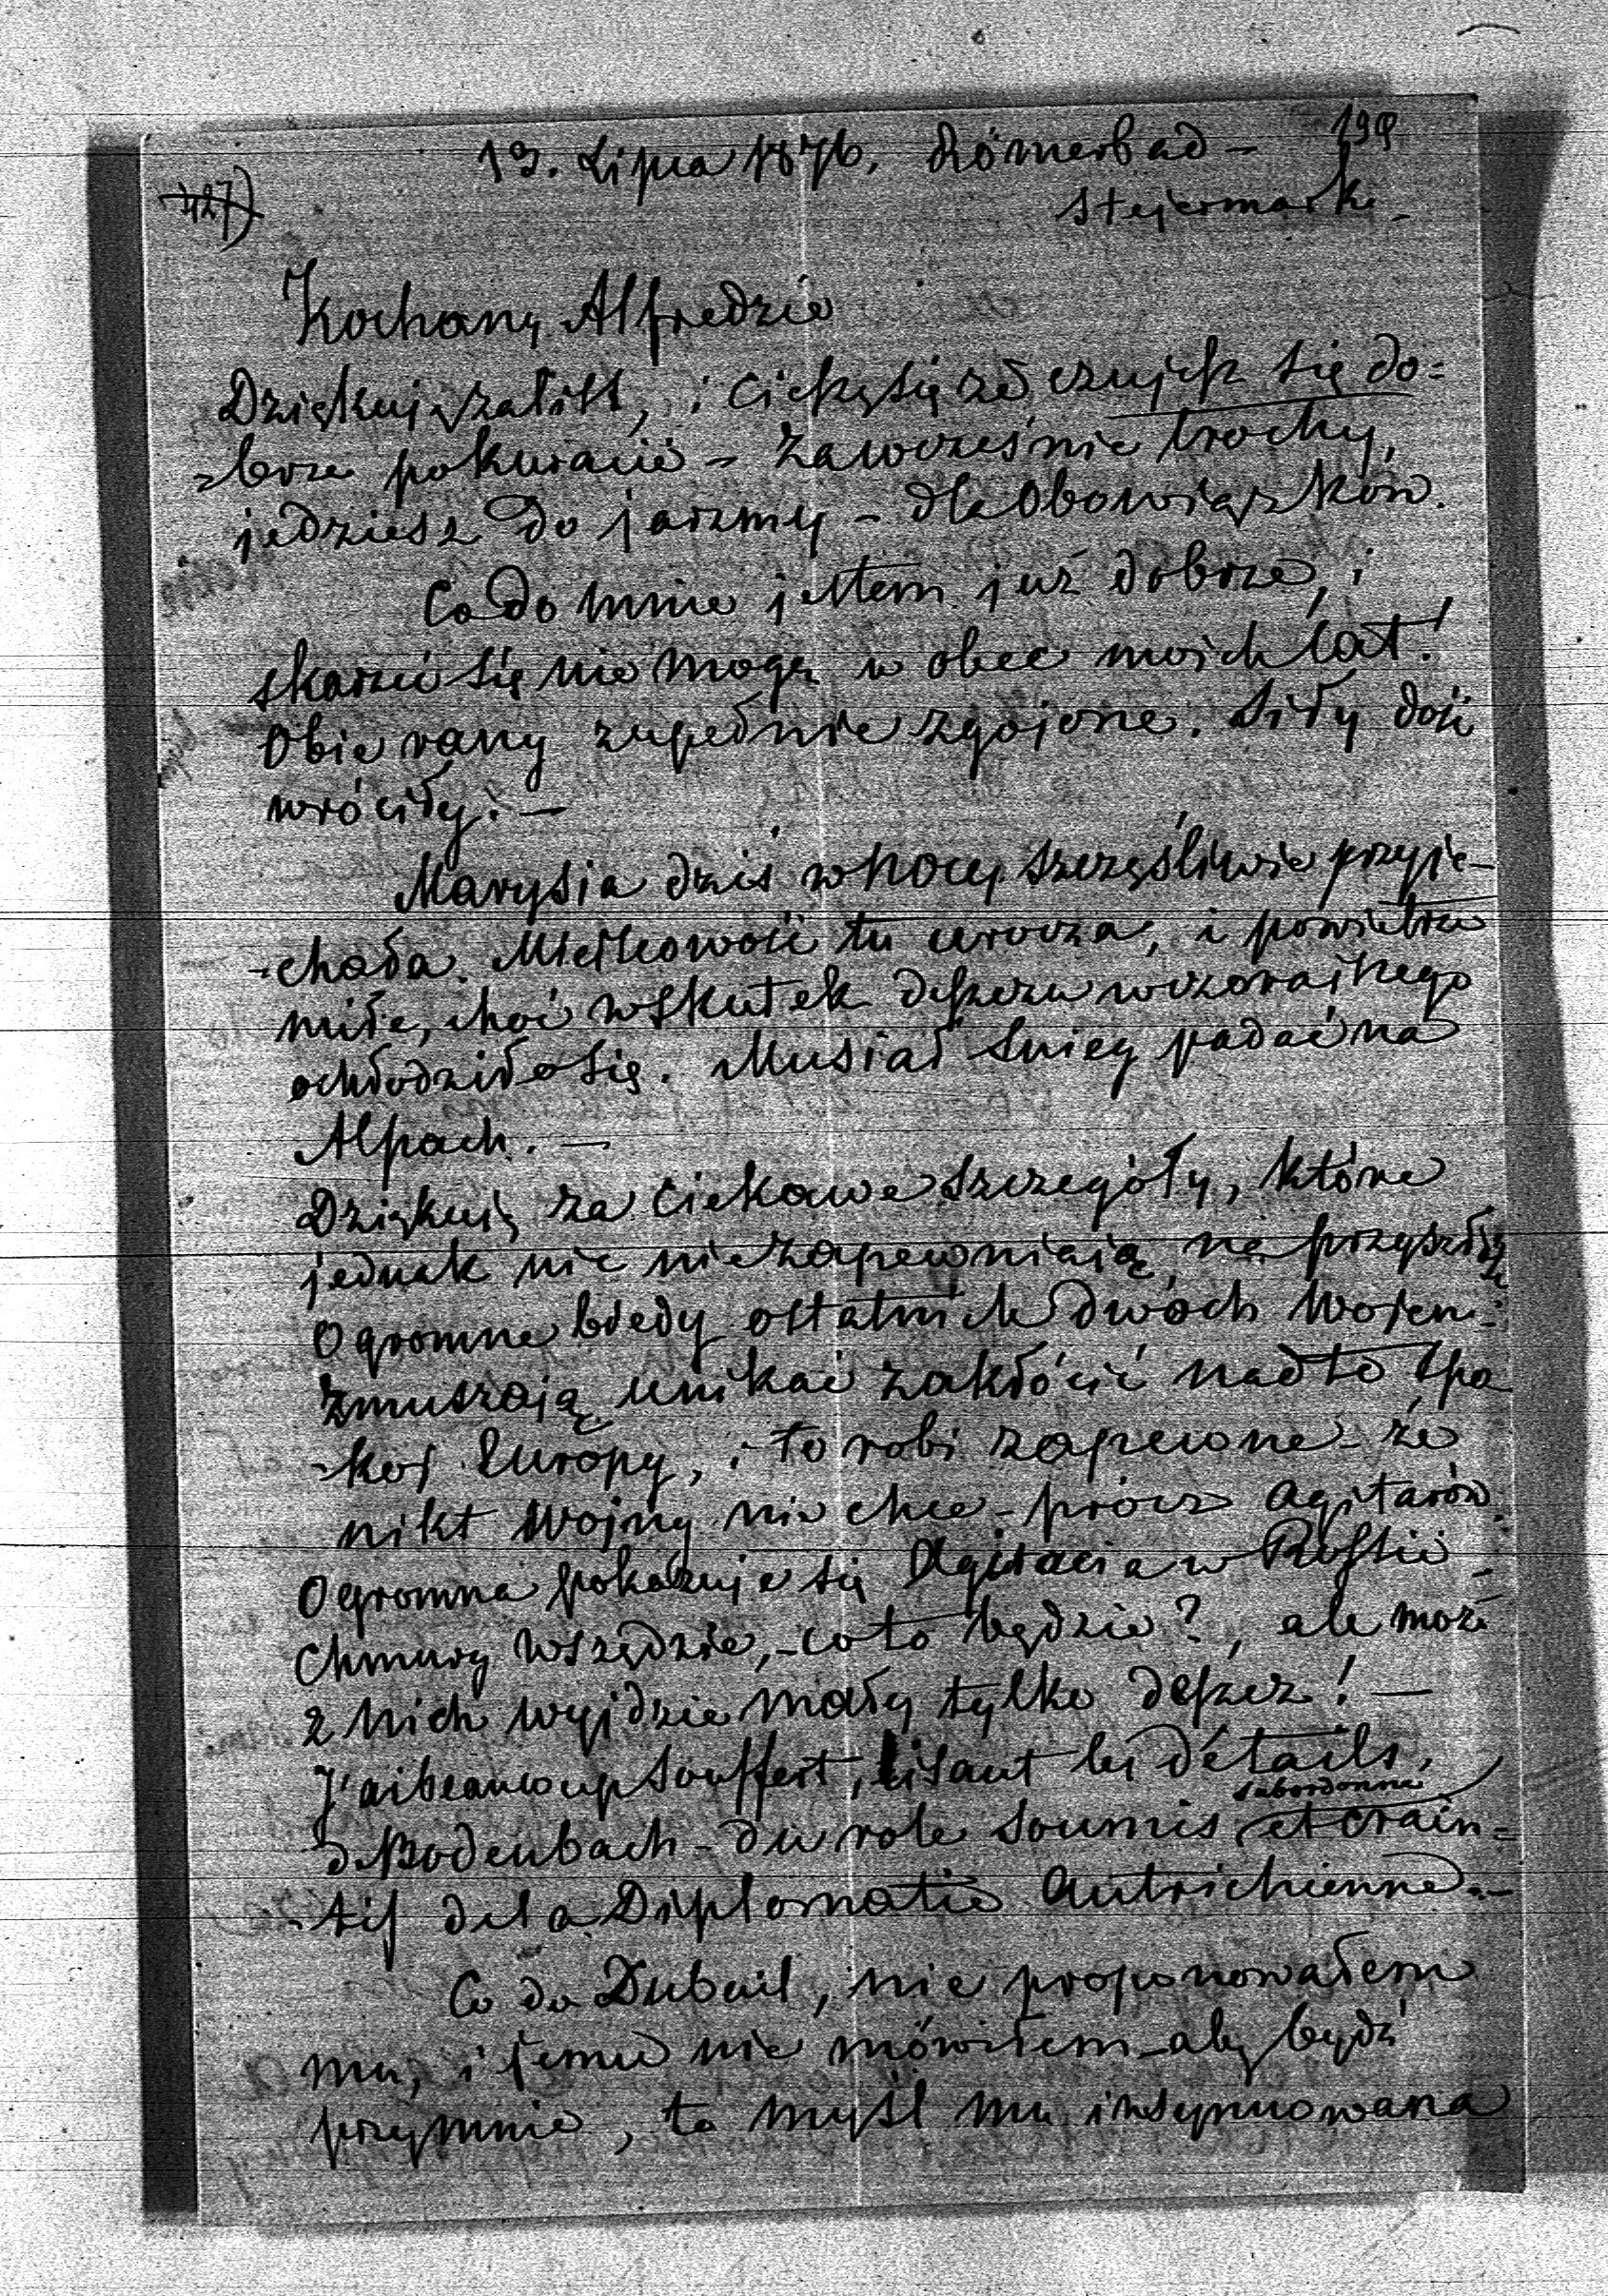 199
427)
13. Lipca 1876. Römerbad –
Stejermark –
Kochany Alfredzie
Dziękuję za list, i cieszę się że czujesz się do=
=brze po kuracii – zawcześnie trochę,
jedziesz do jarzmy – dla obowiązków.
Co do mnie jestem już dobrze, i
skarzić się nie mogę w obec moich lat!
Obie rany zupełnie zgojone. Siły dość
wróciły. –
Marysia dziś w nocy szczęśliwie przyje-
-chała. Miescowość tu urocza, i powietrze
miłe, choć wskutek deszczu wczorajszego
ochłodziło się. Musiał śnieg padać na
Alpach. –
Dziękuję za ciekawe szczegóły, które
jednak nic nie zapewniają na przyszłość
Ogromne biedy ostatnich dwóch wojen
zmuszają unikać zakłócić nadto spo
-koj Europy, i to robi zapewne – że
nikt wojny nie chce – prócz agitarów.
Ogromna pokazuje się Agitacia w Rossii –
Chmury wszędzie, – co to będzie?, ale może
z nich wyjdzie mały tylko deszcz! –
J'ai beaucoup souffert, lisant les détails,
subordonné
d. Bodenbach – du role soumis et crain=
-tif de la Diplomatie Autrichienne. –
Co do Dubail, nie proponowałem
mu, i jemu nie mówiłem – aby będź
przymnie, to myśl mu insynuowana